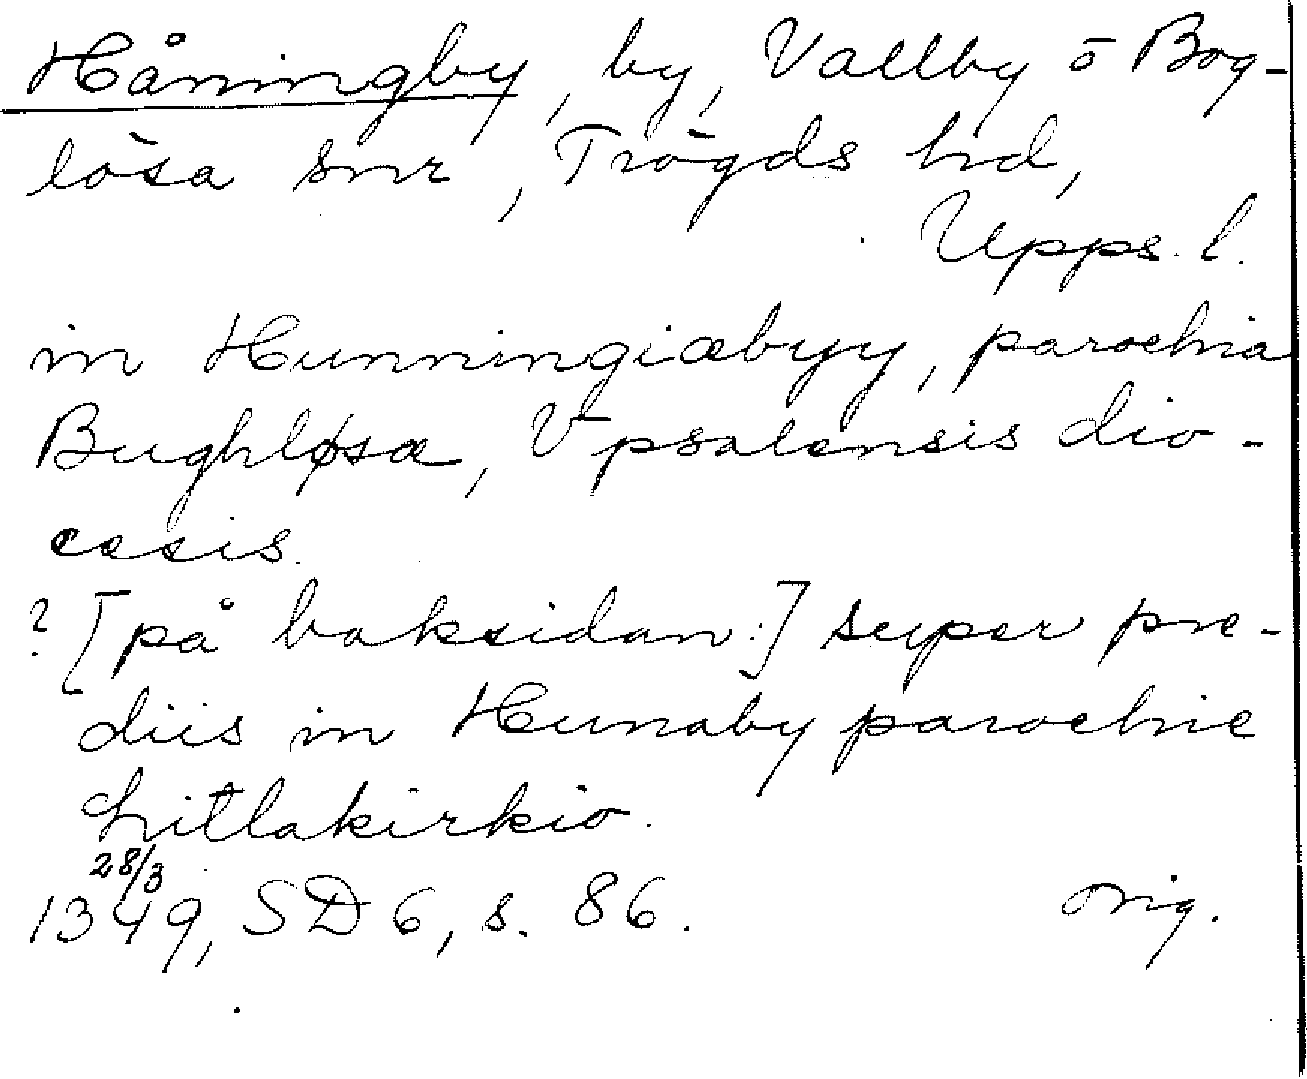 Håningby, by, Vallby o Bog-
lösa snr, Trögds hd,
Upps. l.
in Hunningiæbyy, parochia
Bughløsæ, Vpsalensis dio-
cesis.
? [på baksidan:] super pre-
diis in Hunaby parochie
hitlakirkio.
28/3
1349, SD 6, s. 86. orig.